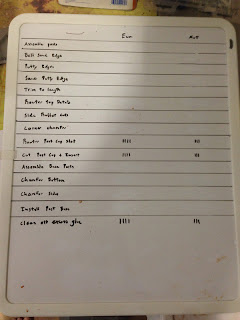 Evan Matt
Assemble parts
Belt Sand Edges
Putty Edges
Sand Putty Edge
Trim to length
Router Top Details
Side Pocket cuts
Corner chamfer
Router Post Cap Slot IIII III
Cut Post Cap & Insert IIII III
Assemble Base Parts
Chamfer Bottom
Chamfer Sides
Install Post Base
Clean off excess glue IIII III